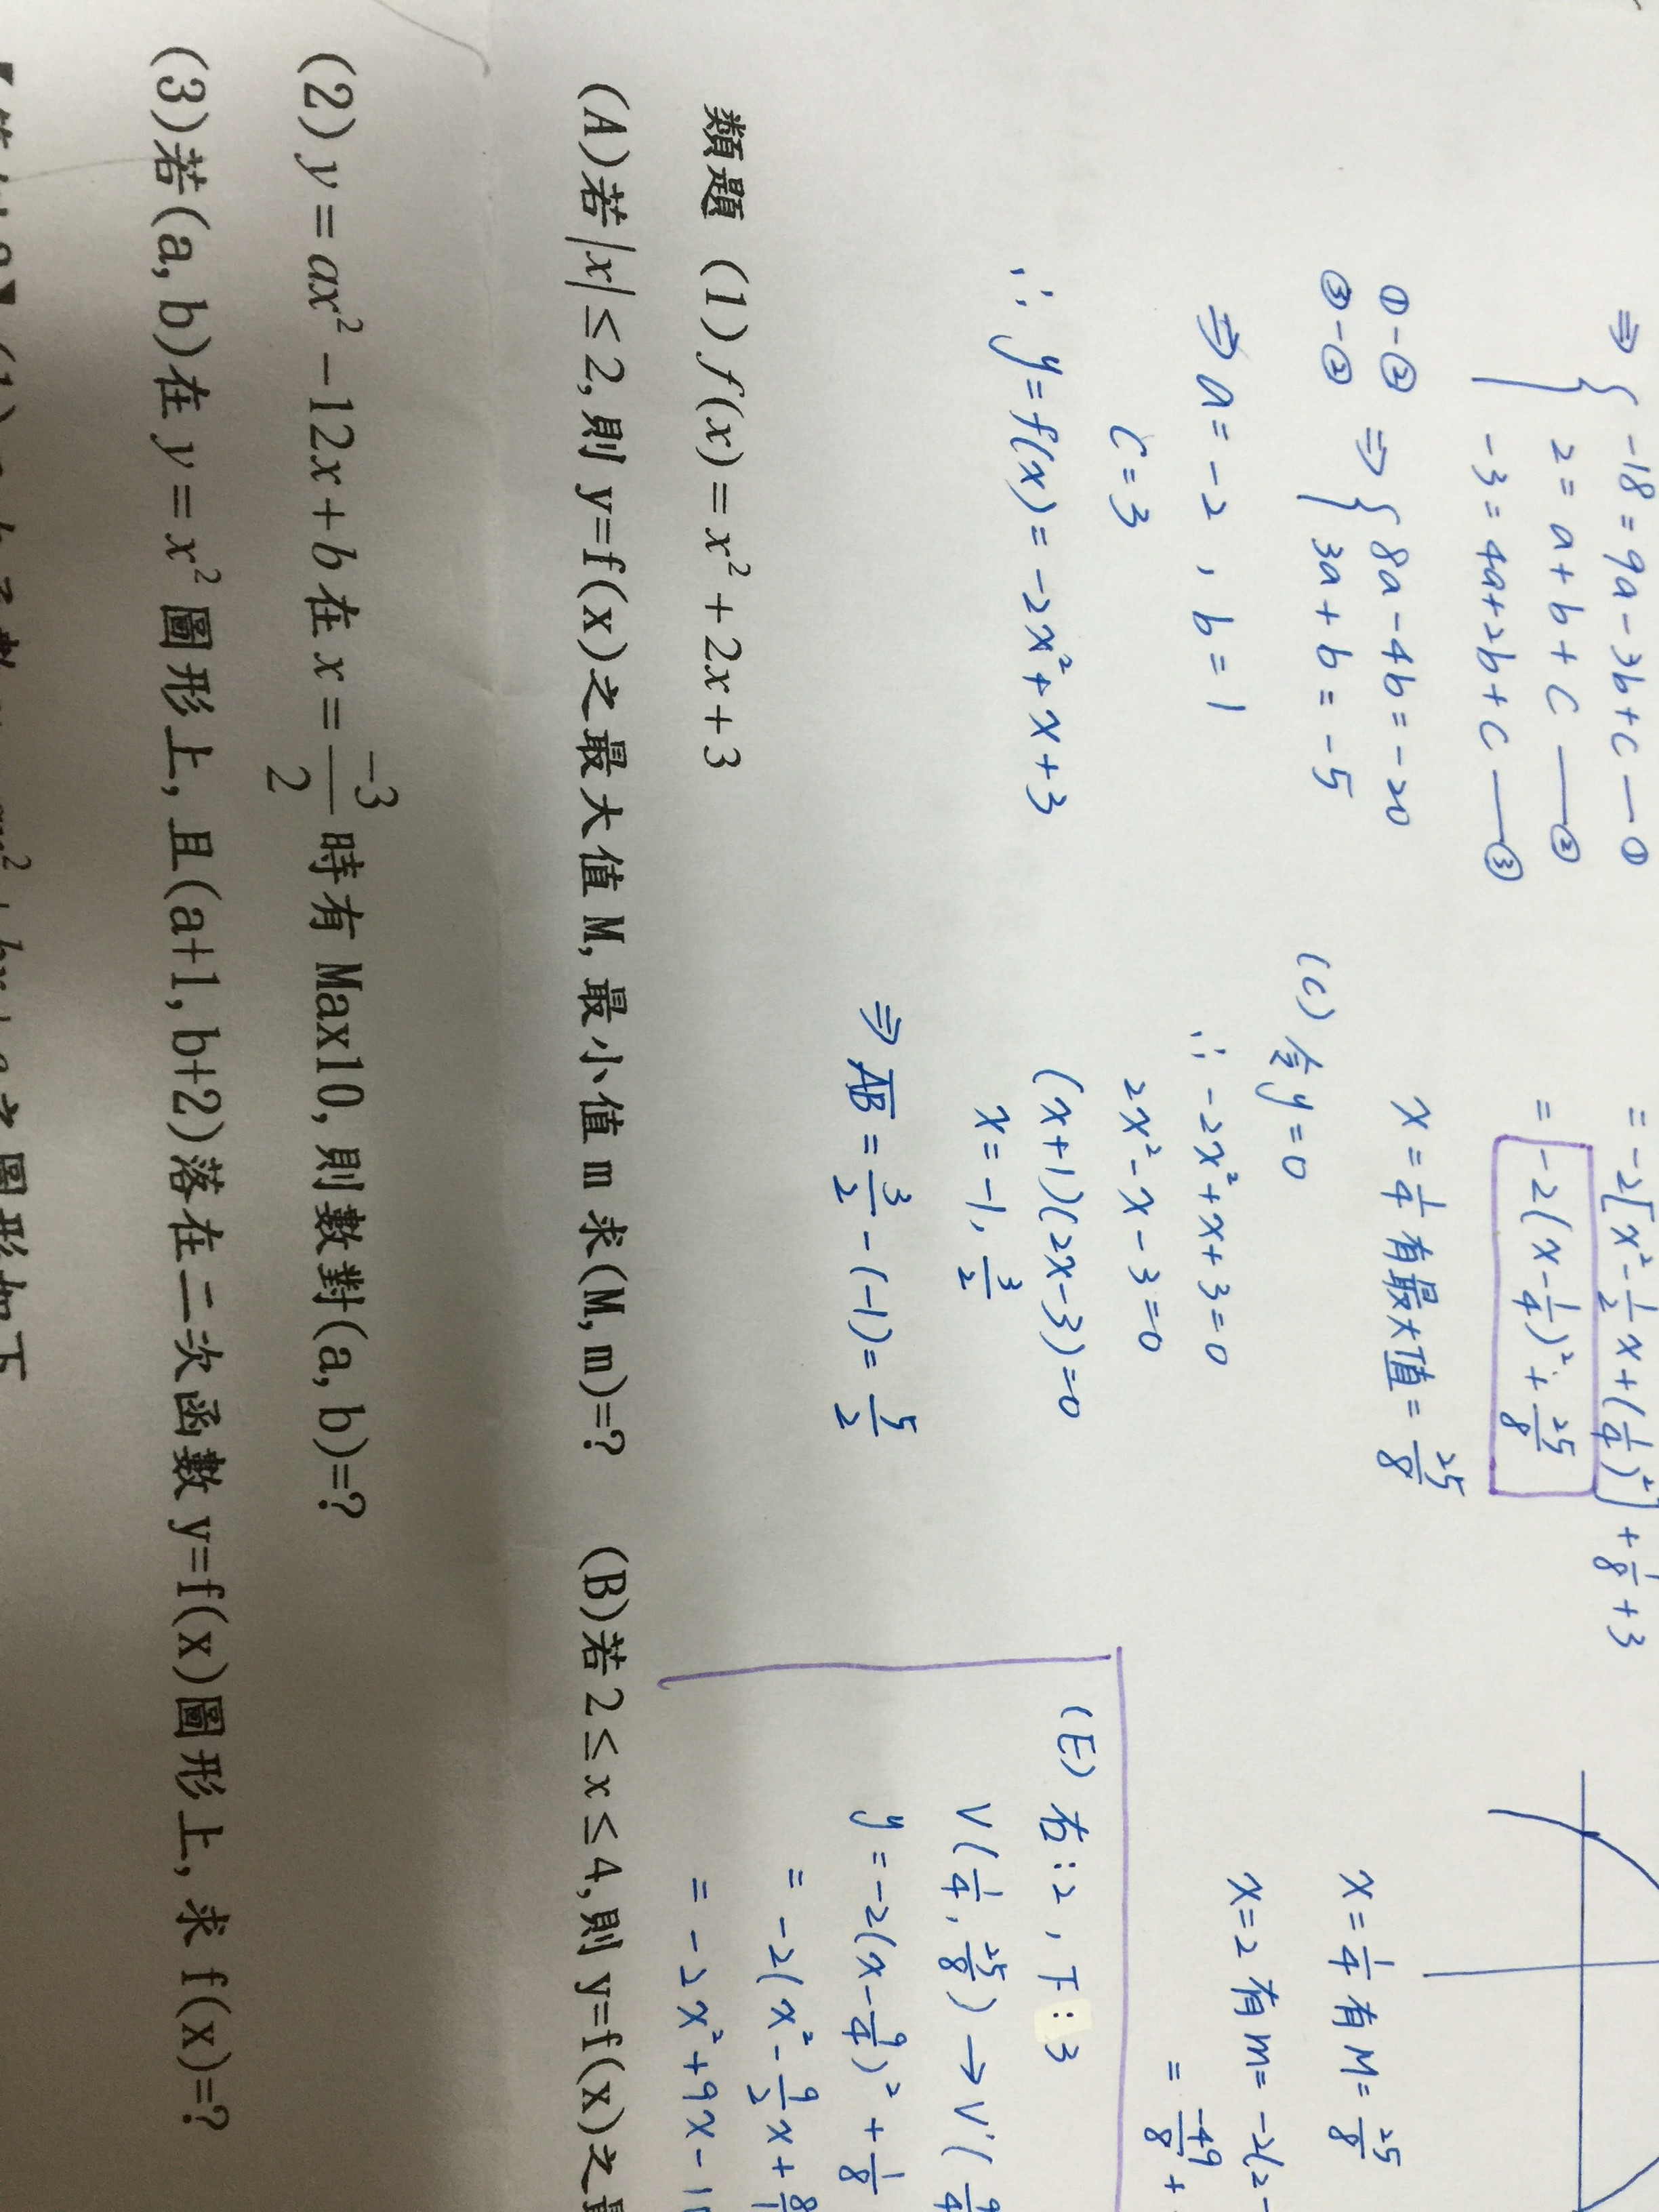 ⇒ { -18 = 9a - 3b + c — ①
2 = a + b + c — ②
-3 = 4a + 2b + c — ③
①-② ⇒ { 8a - 4b = -20
③-② 3a + b = -5
⇒ a = -2 , b = 1
c = 3
∴ y = f(x) = -2x² + x + 3
= -2[x² - 1/2 x + (1/4)²] + 1/8 + 3
= -2(x - 1/4)² + 25/8
x = 1/4 有最大值 = 25/8
(C) 令 y = 0
∴ -2x² + x + 3 = 0
2x² - x - 3 = 0
(x+1)(2x-3) = 0
x = -1, 3/2
⇒ AB = 3/2 - (-1) = 5/2
x = 1/4 有 M = 25/8
x = 2 有 m = -2(2-
= -49/8 +
(E) 右:2 , 下:3
V(1/4, 25/8) → V'(9/4
y = -2(x - 9/4)² + 1/8
= -2(x² - 9/2 x + 8
= -2x² + 9x - 1
類題 (1) f(x) = x² + 2x + 3
(A)若|x| ≤ 2,則 y=f(x)之最大值 M, 最小值 m 求(M, m)=? (B)若 2 ≤ x ≤ 4,則 y=f(x)之最
(2) y = ax² - 12x + b 在 x = -3/2 時有 Max10, 則數對(a, b)=?
(3)若(a, b)在 y = x² 圖形上, 且(a+1, b+2)落在二次函數 y=f(x)圖形上, 求 f(x)=?
之圖形如下